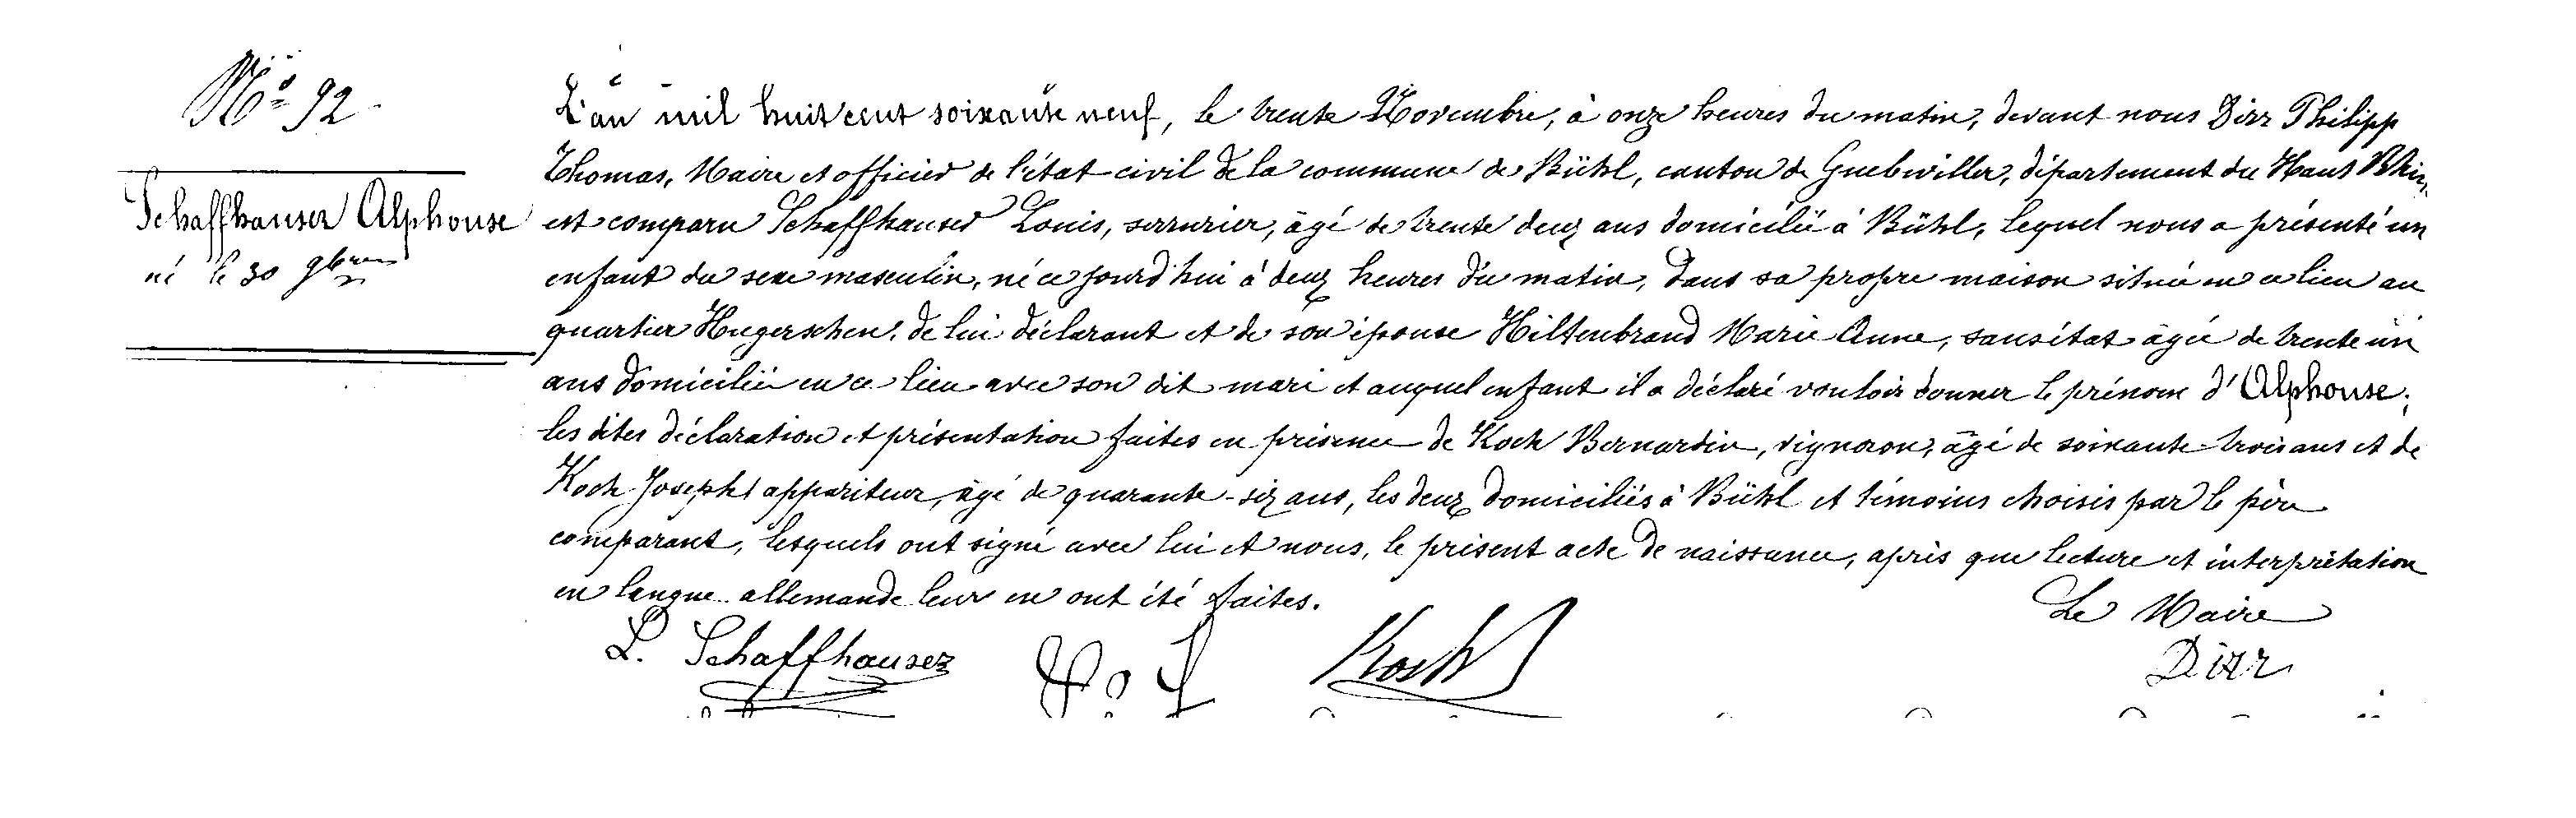 No 92
Schaffhauser Alphonse
né le 30 9bre
L'an mil huit cent soixante neuf, le trente Novembre, à onze heures du matin, devant nous Dirr Philipp
Thomas, Maire et officier de l'état civil de la commune de Bühl, canton de Guebwiller, département du Haut Rhin,
est comparu Schaffhauser Louis, serrurier, âgé de trente deux ans domicilié à Bühl, lequel nous a présenté un
enfant du sexe masculin, né ce jourd'hui à deux heures du matin, dans sa propre maison située en ce lieu au
quartier Hugerschen, de lui déclarant et de son épouse Hiltenbrand Marie Anne, sans état âgée de trente un
ans domiciliée en ce lieu avec son dit mari et auquel enfant il a déclaré vouloir donner le prénom d'Alphonse;
les dites déclaration et présentation faites en présence de Koch Bernardin, vigneron, âgé de soixante-trois ans et de
Koch Joseph, appariteur, âgé de quarante-six ans, les deux domiciliés à Bühl et témoins choisis par le père
comparant, lesquels ont signé avec lui et nous, le présent acte de naissance, après que lecture et interprétation
en langue allemande leur en ont été faites.
Le Maire
L. Schaffhauser Koch Dirr